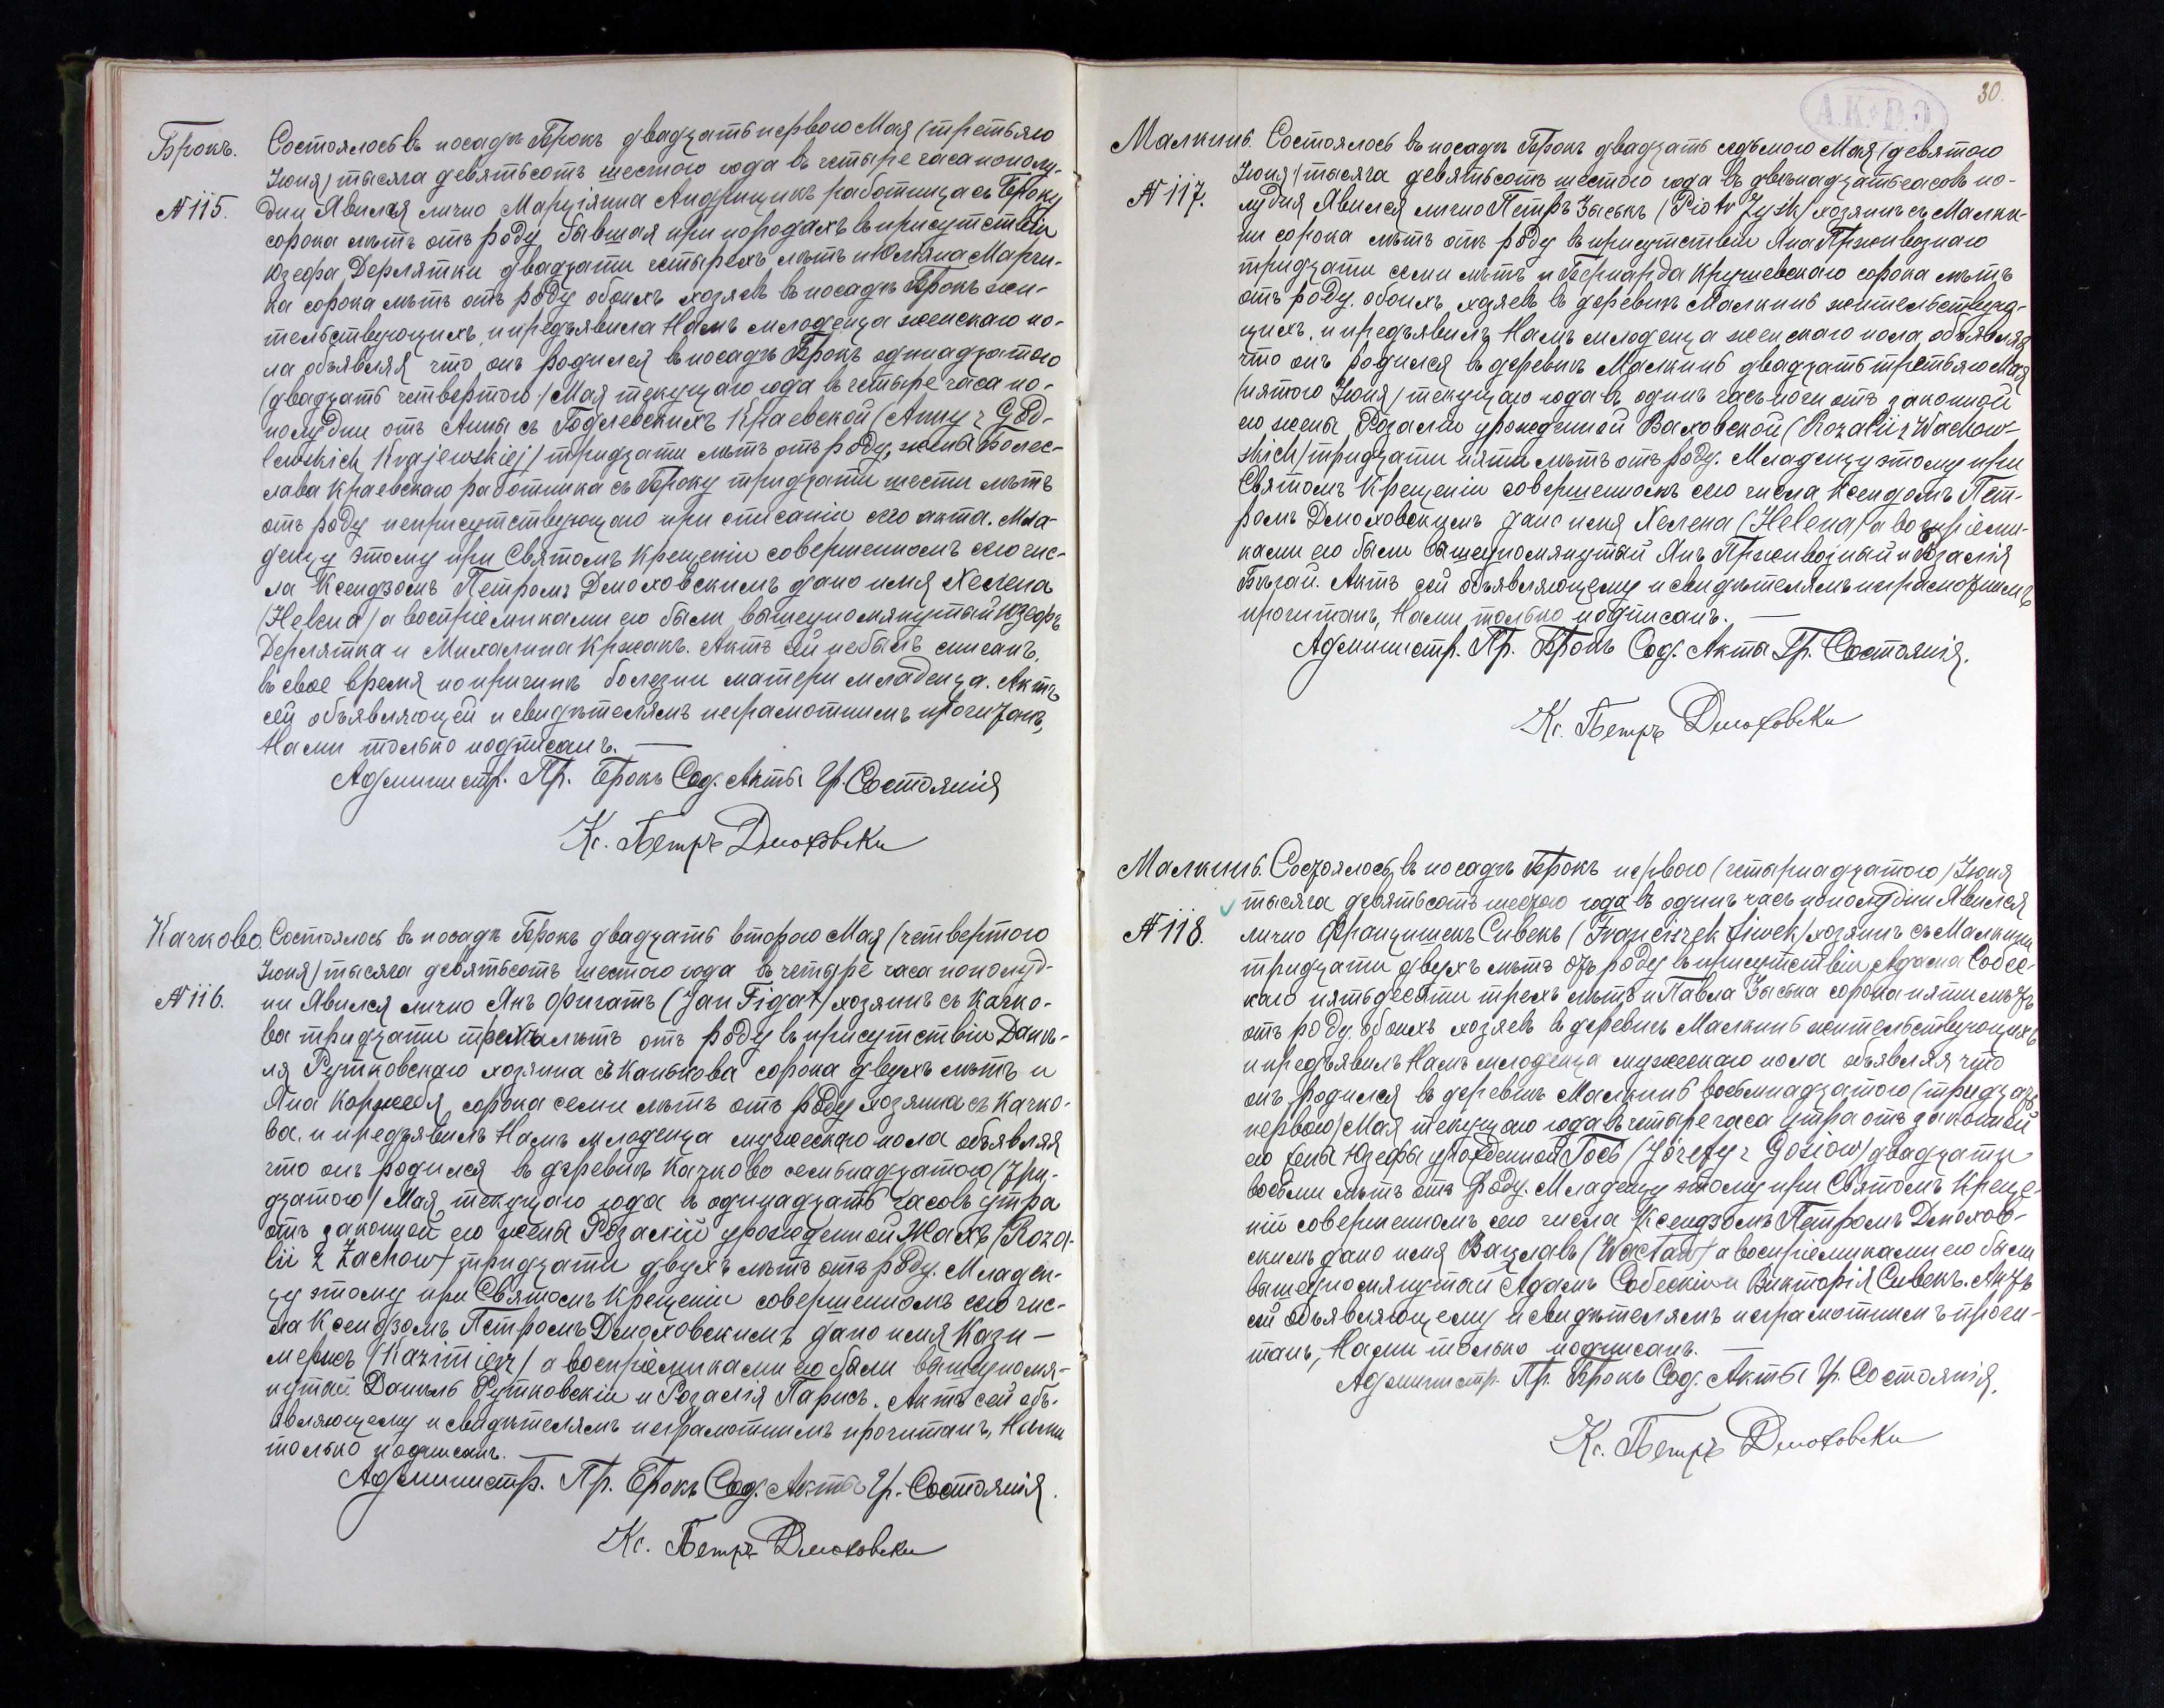 Брокъ.
№ 115.
Состоялось въ посадѣ Брокъ двадзать первого Мая (третьяго
Іюня) тысяча девятьсотъ шестого года въ четыре часа пополу-
дни Явилася лично Марціянна Андрищикъ работница съ Броку
сорока лѣтъ отъ роду бывшая при породахъ въ присутствіи
Юзефа Дерлятки двадзати четырехъ лѣтъ и Юліяна Марчи-
ка сорока лѣтъ отъ роду обоихъ хозяевъ въ посадѣ Брокъ жи-
тельствующихъ, и предъявила Намъ младенца женскаго по-
ла объявляя что онъ родился въ посадѣ Брокъ одинадзатого
(двадзать четвертого) Мая текущаго года въ четыре часа по-
полудни отъ Анны съ Годлевскихъ Краевской (Anny z God-
lewskich Krajewskiej) тридзати лѣтъ отъ роду, жены Болес-
лава Краевскаго работника съ Броку тридзати шести лѣтъ
отъ роду неприсутствующаго при списаніи сего акта. Мла-
денцу этому при Святомъ Крещеніи совершенномъ сего чис-
ла Ксендзомъ Петромъ Дмоховскимъ дано имя Хелена
(Helena) а воспріемниками его были вышеупомянутый Юзефъ
Дерлятка и Михалина Кржакъ. Актъ сей небылъ списанъ,
въ свое время по причинѣ болезни матери младенца. Актъ
сей объявляющей и свидѣтелямъ неграмотнымъ прочитанъ,
Нами только подписанъ. —
Администр. Пр. Брокъ Сод. Акты Гр. Состоянія
Кс. Петръ Дмоховски
Качково.
№ 116.
Состоялось въ посадѣ Брокъ двадзать второго Мая (четвертого
Іюня) тысяча девятьсотъ шестого года въ четыре часа пополуд-
ни Явился лично Янъ Фигатъ (Jan Figat) хозяинъ съ Качко-
ва тридзати трехъ лѣтъ отъ роду въ присутствіи Данѣ-
ля Рутковскаго хозяина съ Канькова сорока двухъ лѣтъ и
Яна Коржебя сорока семи лѣтъ отъ роду хозяина съ Качко-
ва. и предъявилъ Намъ младенца мужескаго пола объявляя
что онъ родился въ деревнѣ Качково семьнадзатого (три-
дзатого) Мая текущаго года въ одинадзать часовъ утра
отъ законной его жены Розаліи урожденной Жахъ (Roza-
lii z Żachow) тридзати двухъ лѣтъ отъ роду. Младен-
цу этому при Святомъ Крещеніи совершенномъ сего чис-
ла Ксендзомъ Петромъ Дмоховскимъ дано имя Кази-
меръ (Kazimierz) а воспріемниками его были вышеупомя-
нутый Данѣль Рутковскій и Розалія Парысъ. Актъ сей объ-
являющему и свидѣтелямъ неграмотнымъ прочитанъ, Нами
только подписанъ. —
Администр. Пр. Брокъ Сод. Акты Гр. Состоянія.
Кс. Петръ Дмоховски
А.К.В.Э
30.
Малкинь.
№ 117.
Состоялось въ посадѣ Брокъ двадзать седьмого Мая (девятого
Іюня) тысяча девятьсотъ шестого года въ двѣнадзать часовъ по-
лудня Явился лично Петръ Зыскъ (Piotr Zysk) хозяинъ съ Малки-
ни сорока лѣтъ отъ роду въ присутствіи Яна Пржевознаго
тридзати семи лѣтъ и Бернарда Крушевскаго сорока лѣтъ
отъ роду. обоихъ хозяевъ въ деревнѣ Малкинь жительствую-
щихъ, и предъявилъ Намъ младенца женскаго пола, объявляя
что онъ родился въ деревнѣ Малкинь двадзать третьяго Мая
(пятого Іюня) текущаго года въ одинъ часъ ночи отъ законной
его жены Розаліи урожденной Ваховской (Rozalii z Wachow-
skich) тридзати пяти лѣтъ отъ роду. Младенцу этому при
Святомъ Крещеніи совершенномъ сего числа Ксендзомъ Пет-
ромъ Дмоховскимъ дано имя Хелена (Helena) а воспріемни-
ками его были вышеупомянутый Янъ Пржевозный и Розалія
Бѣгай. Актъ сей объявляющему и свидѣтелямъ неграмотнымъ
прочитанъ, Нами только подписанъ. —
Администр. Пр. Брокъ Сод. Акта Гр. Состоянія.
Кс. Петръ Дмоховски
Малкинь.
№ 118.
Состоялось въ посадѣ Брокъ первого (четырнадзатого) Іюня
тысяча девятьсотъ шестого года въ одинъ часъ пополудни Явился
лично Францишекъ Сивекъ (Franciszek Siwek) хозяинъ съ Малкини
тридзати двухъ лѣтъ отъ роду въ присутствіи Адама Собес-
каго пятьдесяти трехъ лѣтъ и Павла Зыска сорока пяти лѣтъ
отъ роду. обоихъ хозяевъ въ деревнѣ Малкинь жительствующихъ
и предъявилъ Намъ младенца мужескаго пола объявляя что
онъ родился въ деревнѣ Малкинь восемнадзатого (тридзать
первого) Мая текущаго года въ четыре часа утра отъ законной
его жены Юзефы урожденной Гось (Józefy z Gosiow) двадзати
восьми лѣтъ отъ роду. Младенцу этому при Святомъ Креще-
ніи совершенномъ сего числа Ксендзомъ Петромъ Дмохов-
скимъ дано имя Вацлавъ (Wacław) а воспріемниками его были
вышеупомянутый Адамъ Собескій и Викторія Сивекъ. Актъ
сей объявляющему и свидѣтелямъ неграмотнымъ прочи-
танъ, Нами только подписанъ. —
Администр. Пр. Брокъ Сод. Акты Гр. Состоянія.
Кс. Петръ Дмоховски